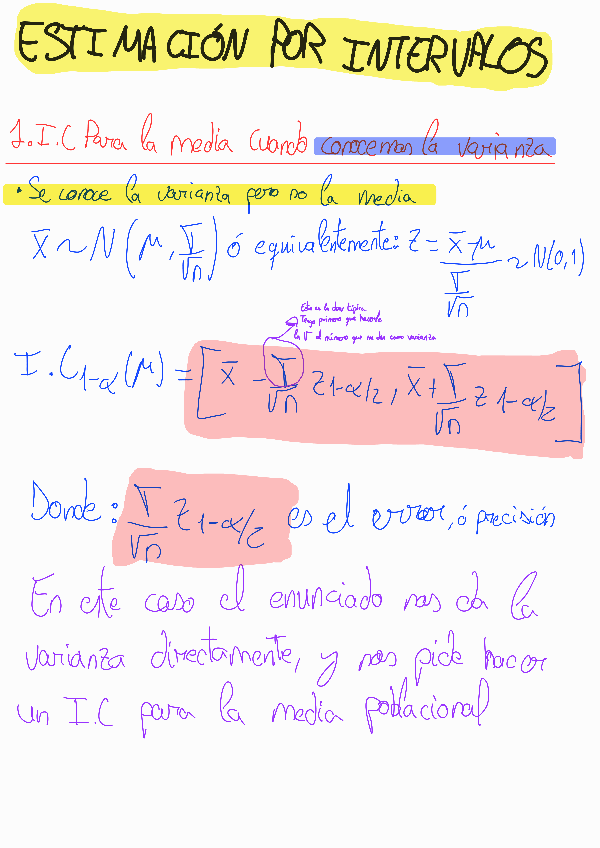 ESTIMACIÓN POR INTERVALOS
1. I.C Para la media cuando conocemos la varianza
· Se conoce la varianza pero no la media
X̄ ~ N(μ, σ/√n) ó equivalentemente: Z = (X̄-μ)/(σ/√n) ~ N(0,1)
Esta es la desv típica
Tengo primero que hacerle
la √ al número que me dan como varianza
I.C₁₋α(μ) = [X̄ - σ/√n Z1-α/2, X̄ + σ/√n Z1-α/2]
Donde: σ/√n Z1-α/2 es el error, ó precisión
En este caso el enunciado nos da la
varianza directamente, y nos pide hacer
un I.C para la media poblacional